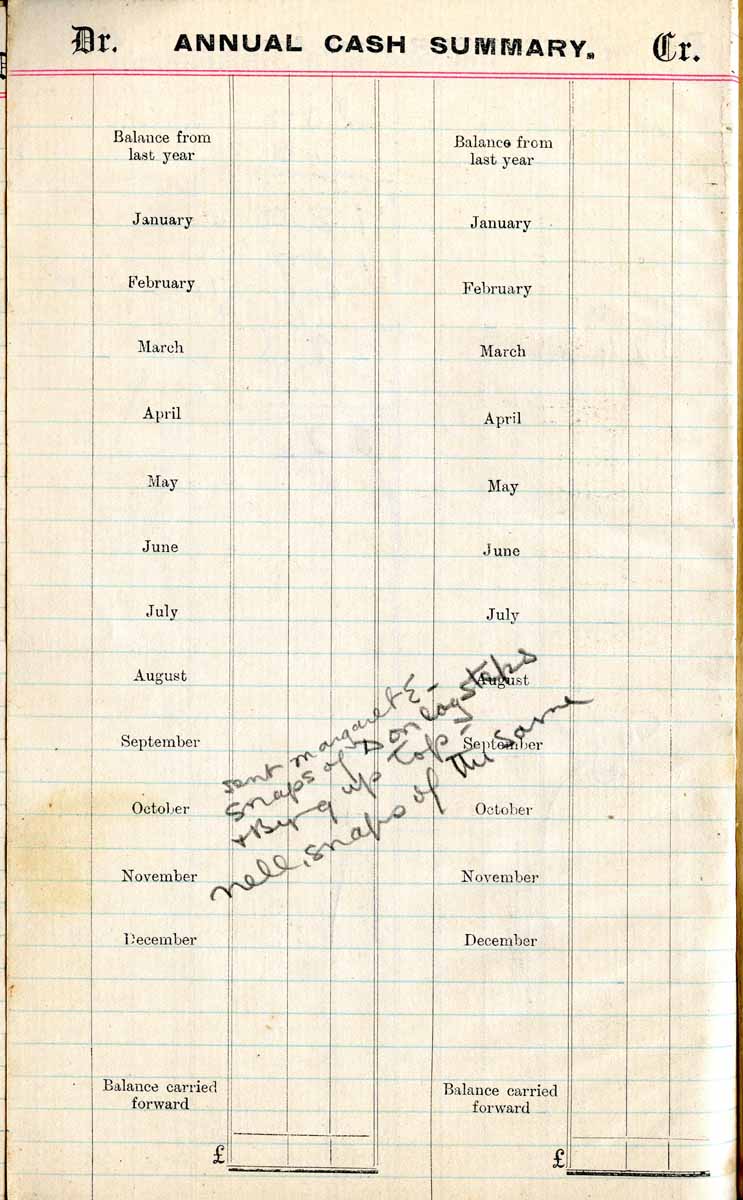 Dr. ANNUAL CASH SUMMARY. Cr.
Balance from
last year
January
February
March
April
May
June
July
August
September
October
November
December
Balance carried
forward
£
Balance from
last year
January
February
March
April
May
June
July
August
September
October
November
December
Balance carried
forward
£
sent Margaret E-
snaps of Don on steps
up top-
Nell, snaps of the same